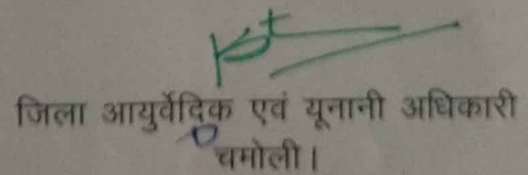 जिला आयुर्वेदिक एवं यूनानी अधिकारी
चमोली।